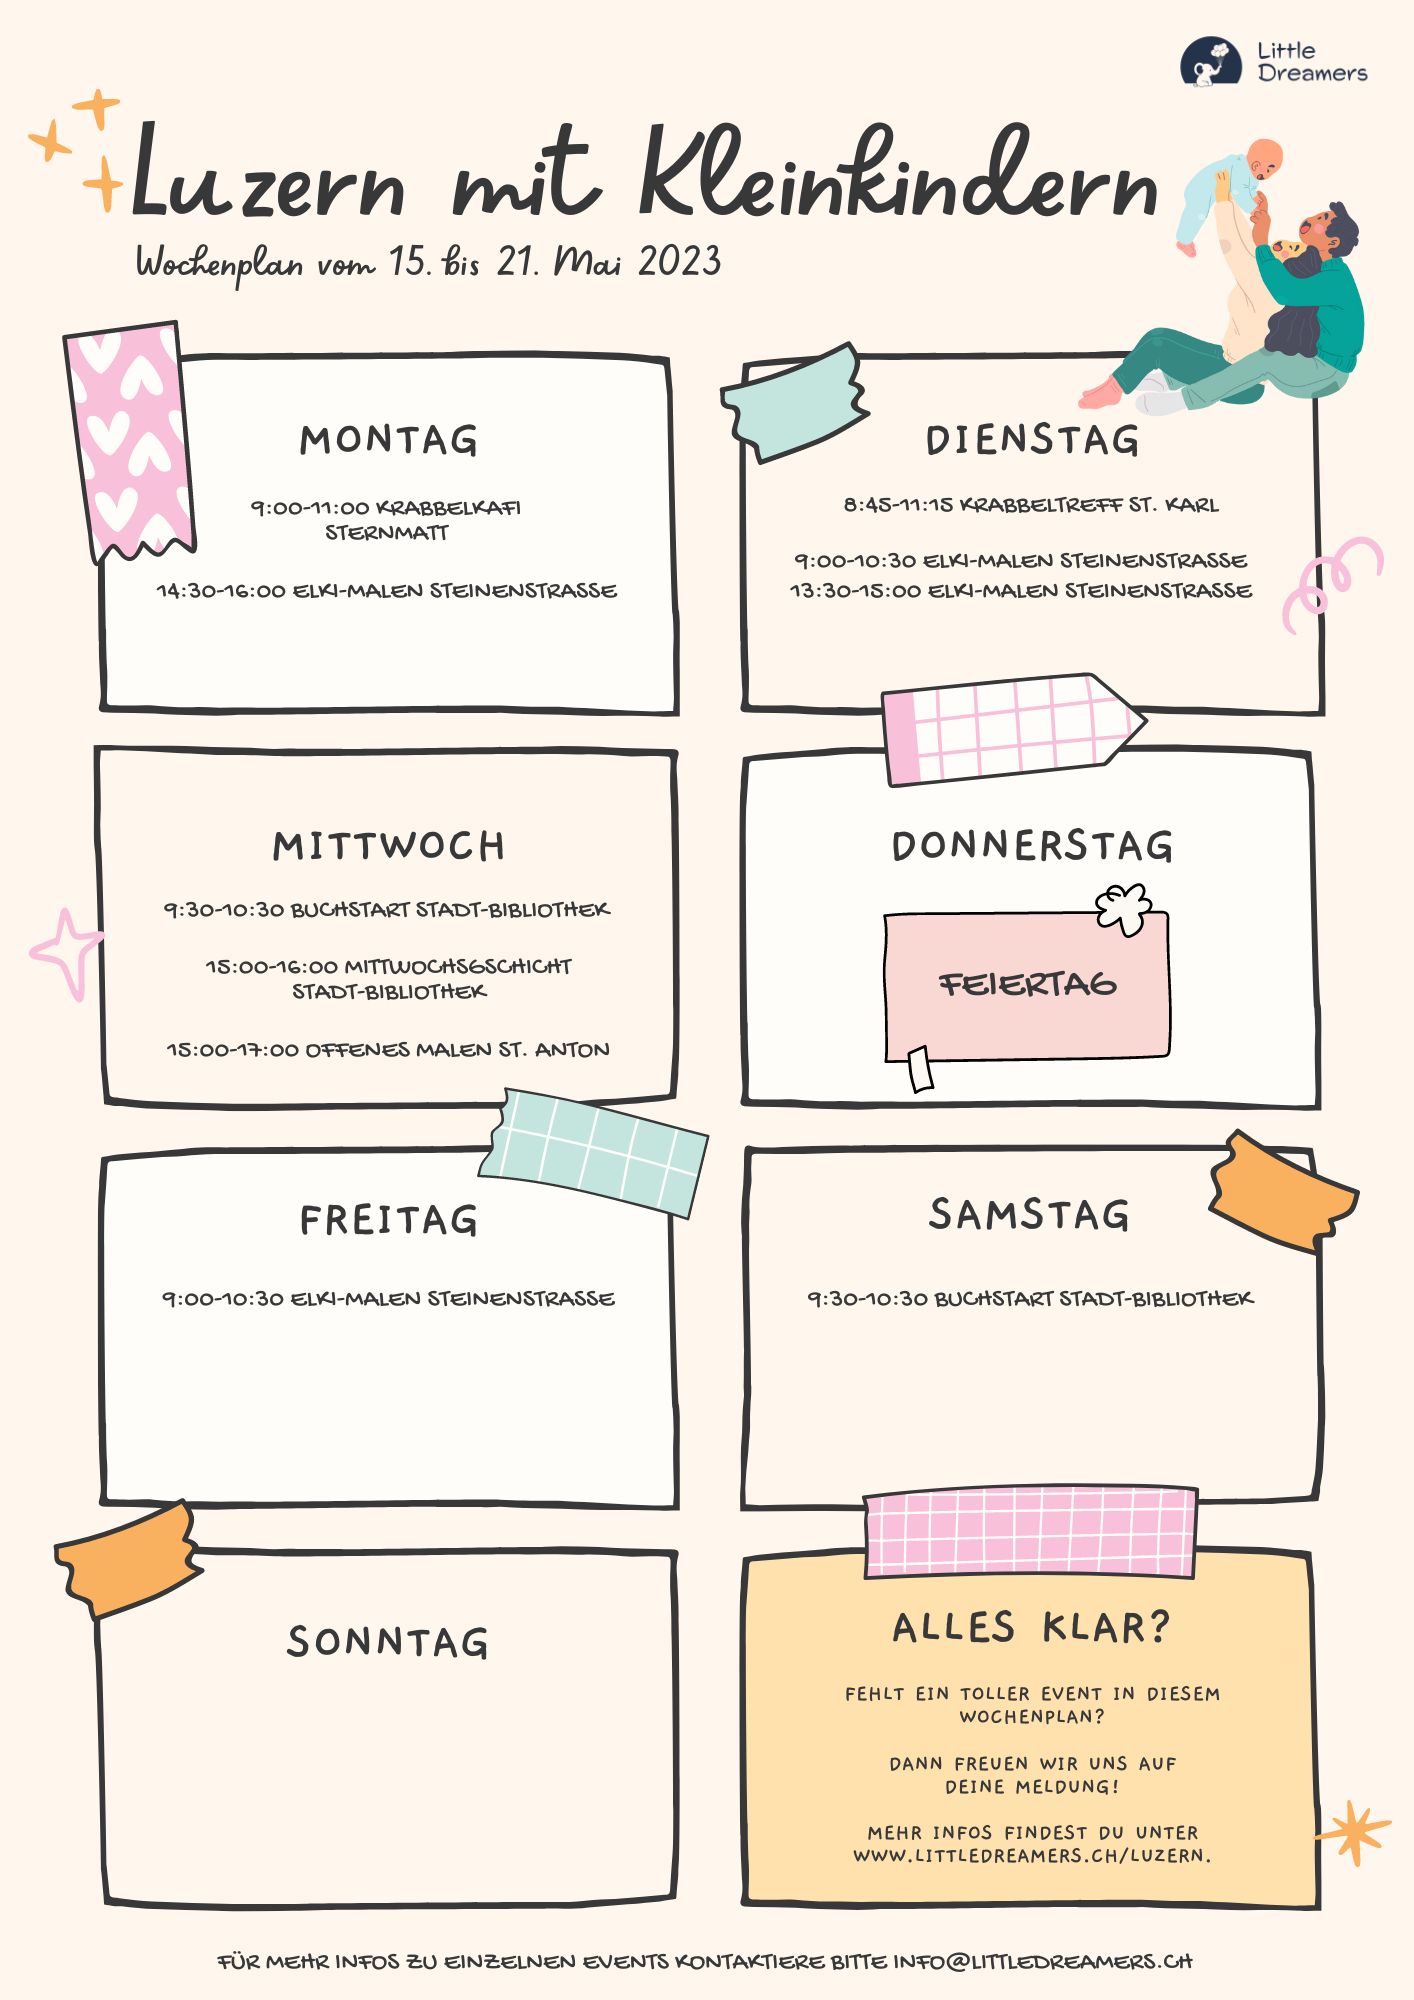 Little
Dreamers
Luzern mit Kleinkindern
Wochenplan vom 15. bis 21. Mai 2023
MONTAG
9:00-11:00 KRABBELKAFI
STERNMATT
14:30-16:00 ELKI-MALEN STEINENSTRASSE
DIENSTAG
8:45-11:15 KRABBELTREFF ST. KARL
9:00-10:30 ELKI-MALEN STEINENSTRASSE
13:30-15:00 ELKI-MALEN STEINENSTRASSE
MITTWOCH
9:30-10:30 BUCHSTART STADT-BIBLIOTHEK
15:00-16:00 MITTWOCHSGSCHICHT
STADT-BIBLIOTHEK
15:00-17:00 OFFENES MALEN ST. ANTON
DONNERSTAG
FEIERTAG
FREITAG
9:00-10:30 ELKI-MALEN STEINENSTRASSE
SAMSTAG
9:30-10:30 BUCHSTART STADT-BIBLIOTHEK
SONNTAG
ALLES KLAR?
FEHLT EIN TOLLER EVENT IN DIESEM
WOCHENPLAN?
DANN FREUEN WIR UNS AUF
DEINE MELDUNG!
MEHR INFOS FINDEST DU UNTER
WWW.LITTLEDREAMERS.CH/LUZERN.
FÜR MEHR INFOS ZU EINZELNEN EVENTS KONTAKTIERE BITTE INFO@LITTLEDREAMERS.CH